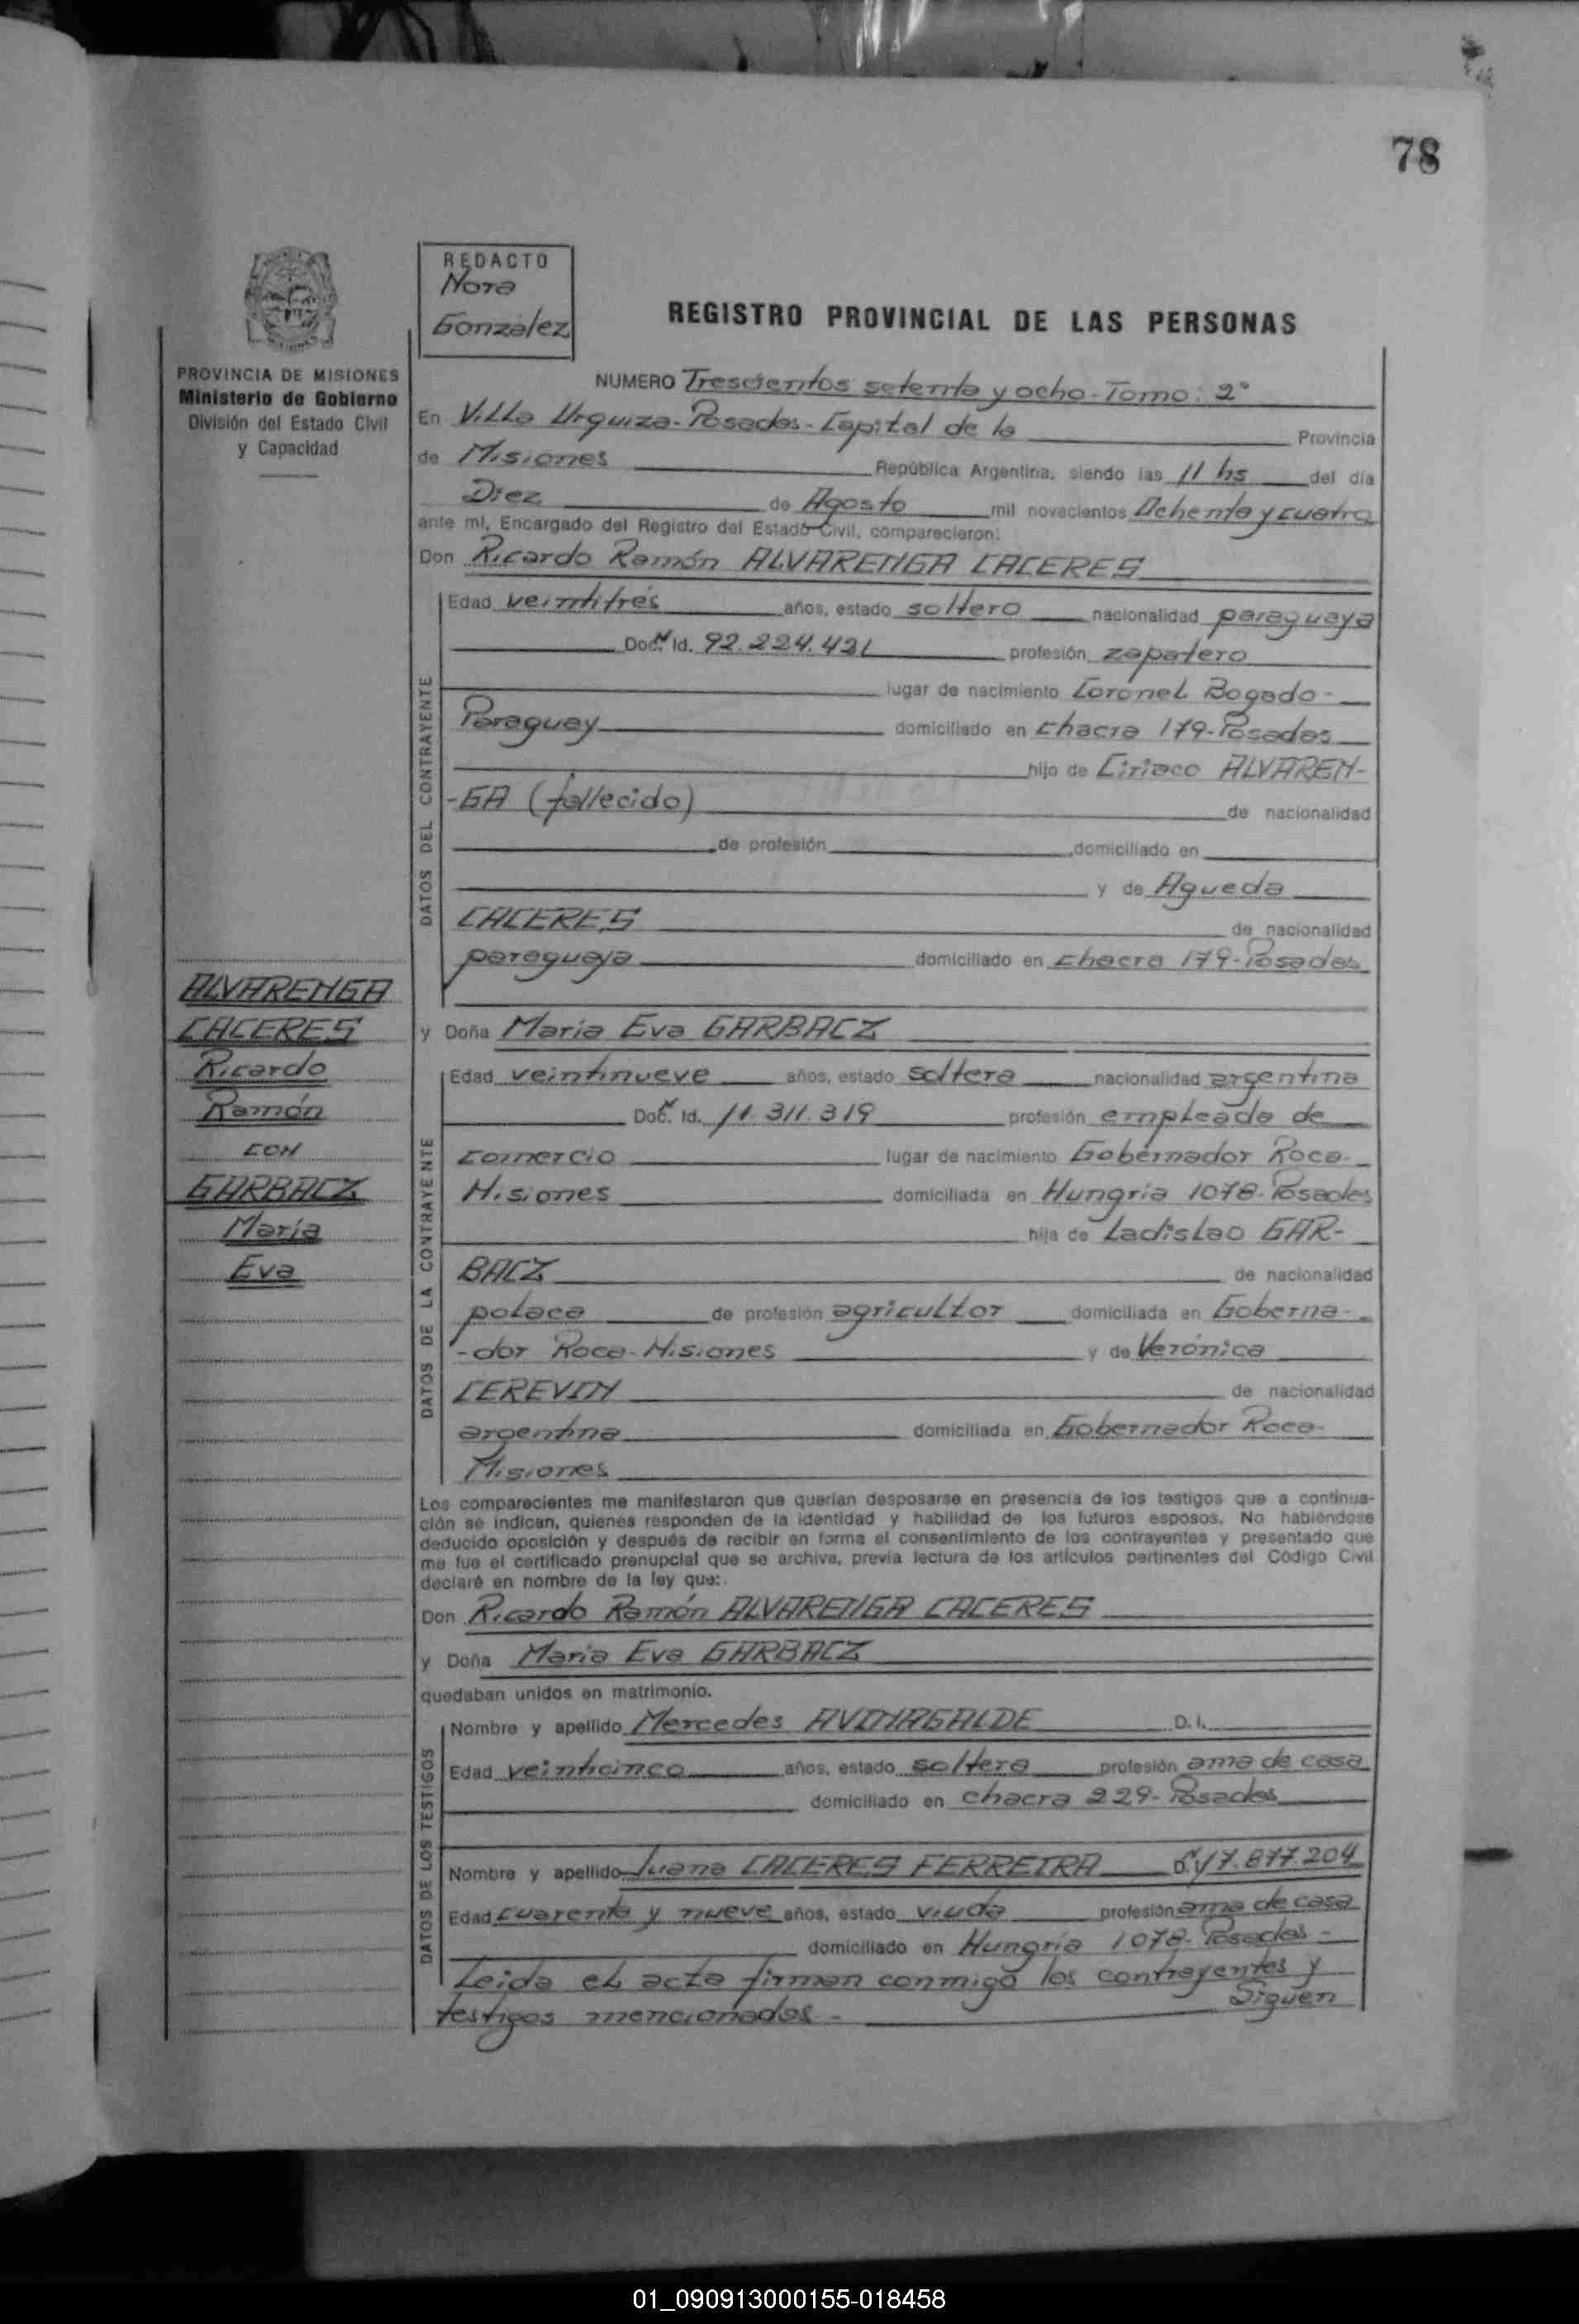 78
REDACTO
Nora
González
REGISTRO PROVINCIAL DE LAS PERSONAS
PROVINCIA DE MISIONES
Ministerio de Gobierno
División del Estado Civil
y Capacidad
NUMERO Trescientos setenta y ocho - Tomo: 2°
En Villa Urquiza - Posadas - Capital de la Provincia
de Misiones República Argentina, siendo las 11 hs del día
Diez de Agosto mil novecientos Ochenta y cuatro
ante mi, Encargado del Registro del Estado Civil, comparecieron:
Don Ricardo Ramón ALVARENGA CACERES
DATOS DEL CONTRAYENTE
Edad veintitrés años, estado soltero nacionalidad paraguaya
Doc. Id. 92.224.421 profesión zapatero
lugar de nacimiento Coronel Bogado -
Paraguay domiciliado en chacra 179 - Posadas
hijo de Ciriaco ALVAREN-
-GA (fallecido) de nacionalidad
de profesión domiciliado en
y de Agueda
CACERES de nacionalidad
paraguaya domiciliado en chacra 179 - Posadas
ALVARENGA
CACERES
Ricardo
Ramón
CON
GARBACZ
María
Eva
y Doña María Eva GARBACZ
DATOS DE LA CONTRAYENTE
Edad veintinueve años, estado soltera nacionalidad argentina
Doc. Id. 11.311.319 profesión empleada de
comercio lugar de nacimiento Gobernador Roca -
Misiones domiciliada en Hungría 1078 - Posadas
hija de Ladislao GAR-
BACZ de nacionalidad
polaca de profesión agricultor domiciliada en Goberna-
-dor Roca - Misiones y de Verónica
CEREVIN de nacionalidad
argentina domiciliada en Gobernador Roca -
Misiones
Los comparecientes me manifestaron que querían desposarse en presencia de los testigos que a continua-
ción se indican, quienes responden de la identidad y habilidad de los futuros esposos. No habiéndose
deducido oposición y después de recibir en forma el consentimiento de los contrayentes y presentado que
me fue el certificado prenupcial que se archiva, previa lectura de los artículos pertinentes del Código Civil
declaré en nombre de la ley que:
Don Ricardo Ramón ALVARENGA CACERES
y Doña María Eva GARBACZ
quedaban unidos en matrimonio.
DATOS DE LOS TESTIGOS
Nombre y apellido Mercedes D.I.
Edad veinticinco años, estado soltera profesión ama de casa
domiciliado en chacra 229 - Posadas
Nombre y apellido Juana CACERES FERREIRA 7.877.204
Edad cuarenta y nueve años, estado viuda profesión ama de casa
domiciliado en Hungría 1078 - Posadas -
Leida el acta firman conmigo los contrayentes y
testigos mencionados - Siguen
01_090913000155-018458